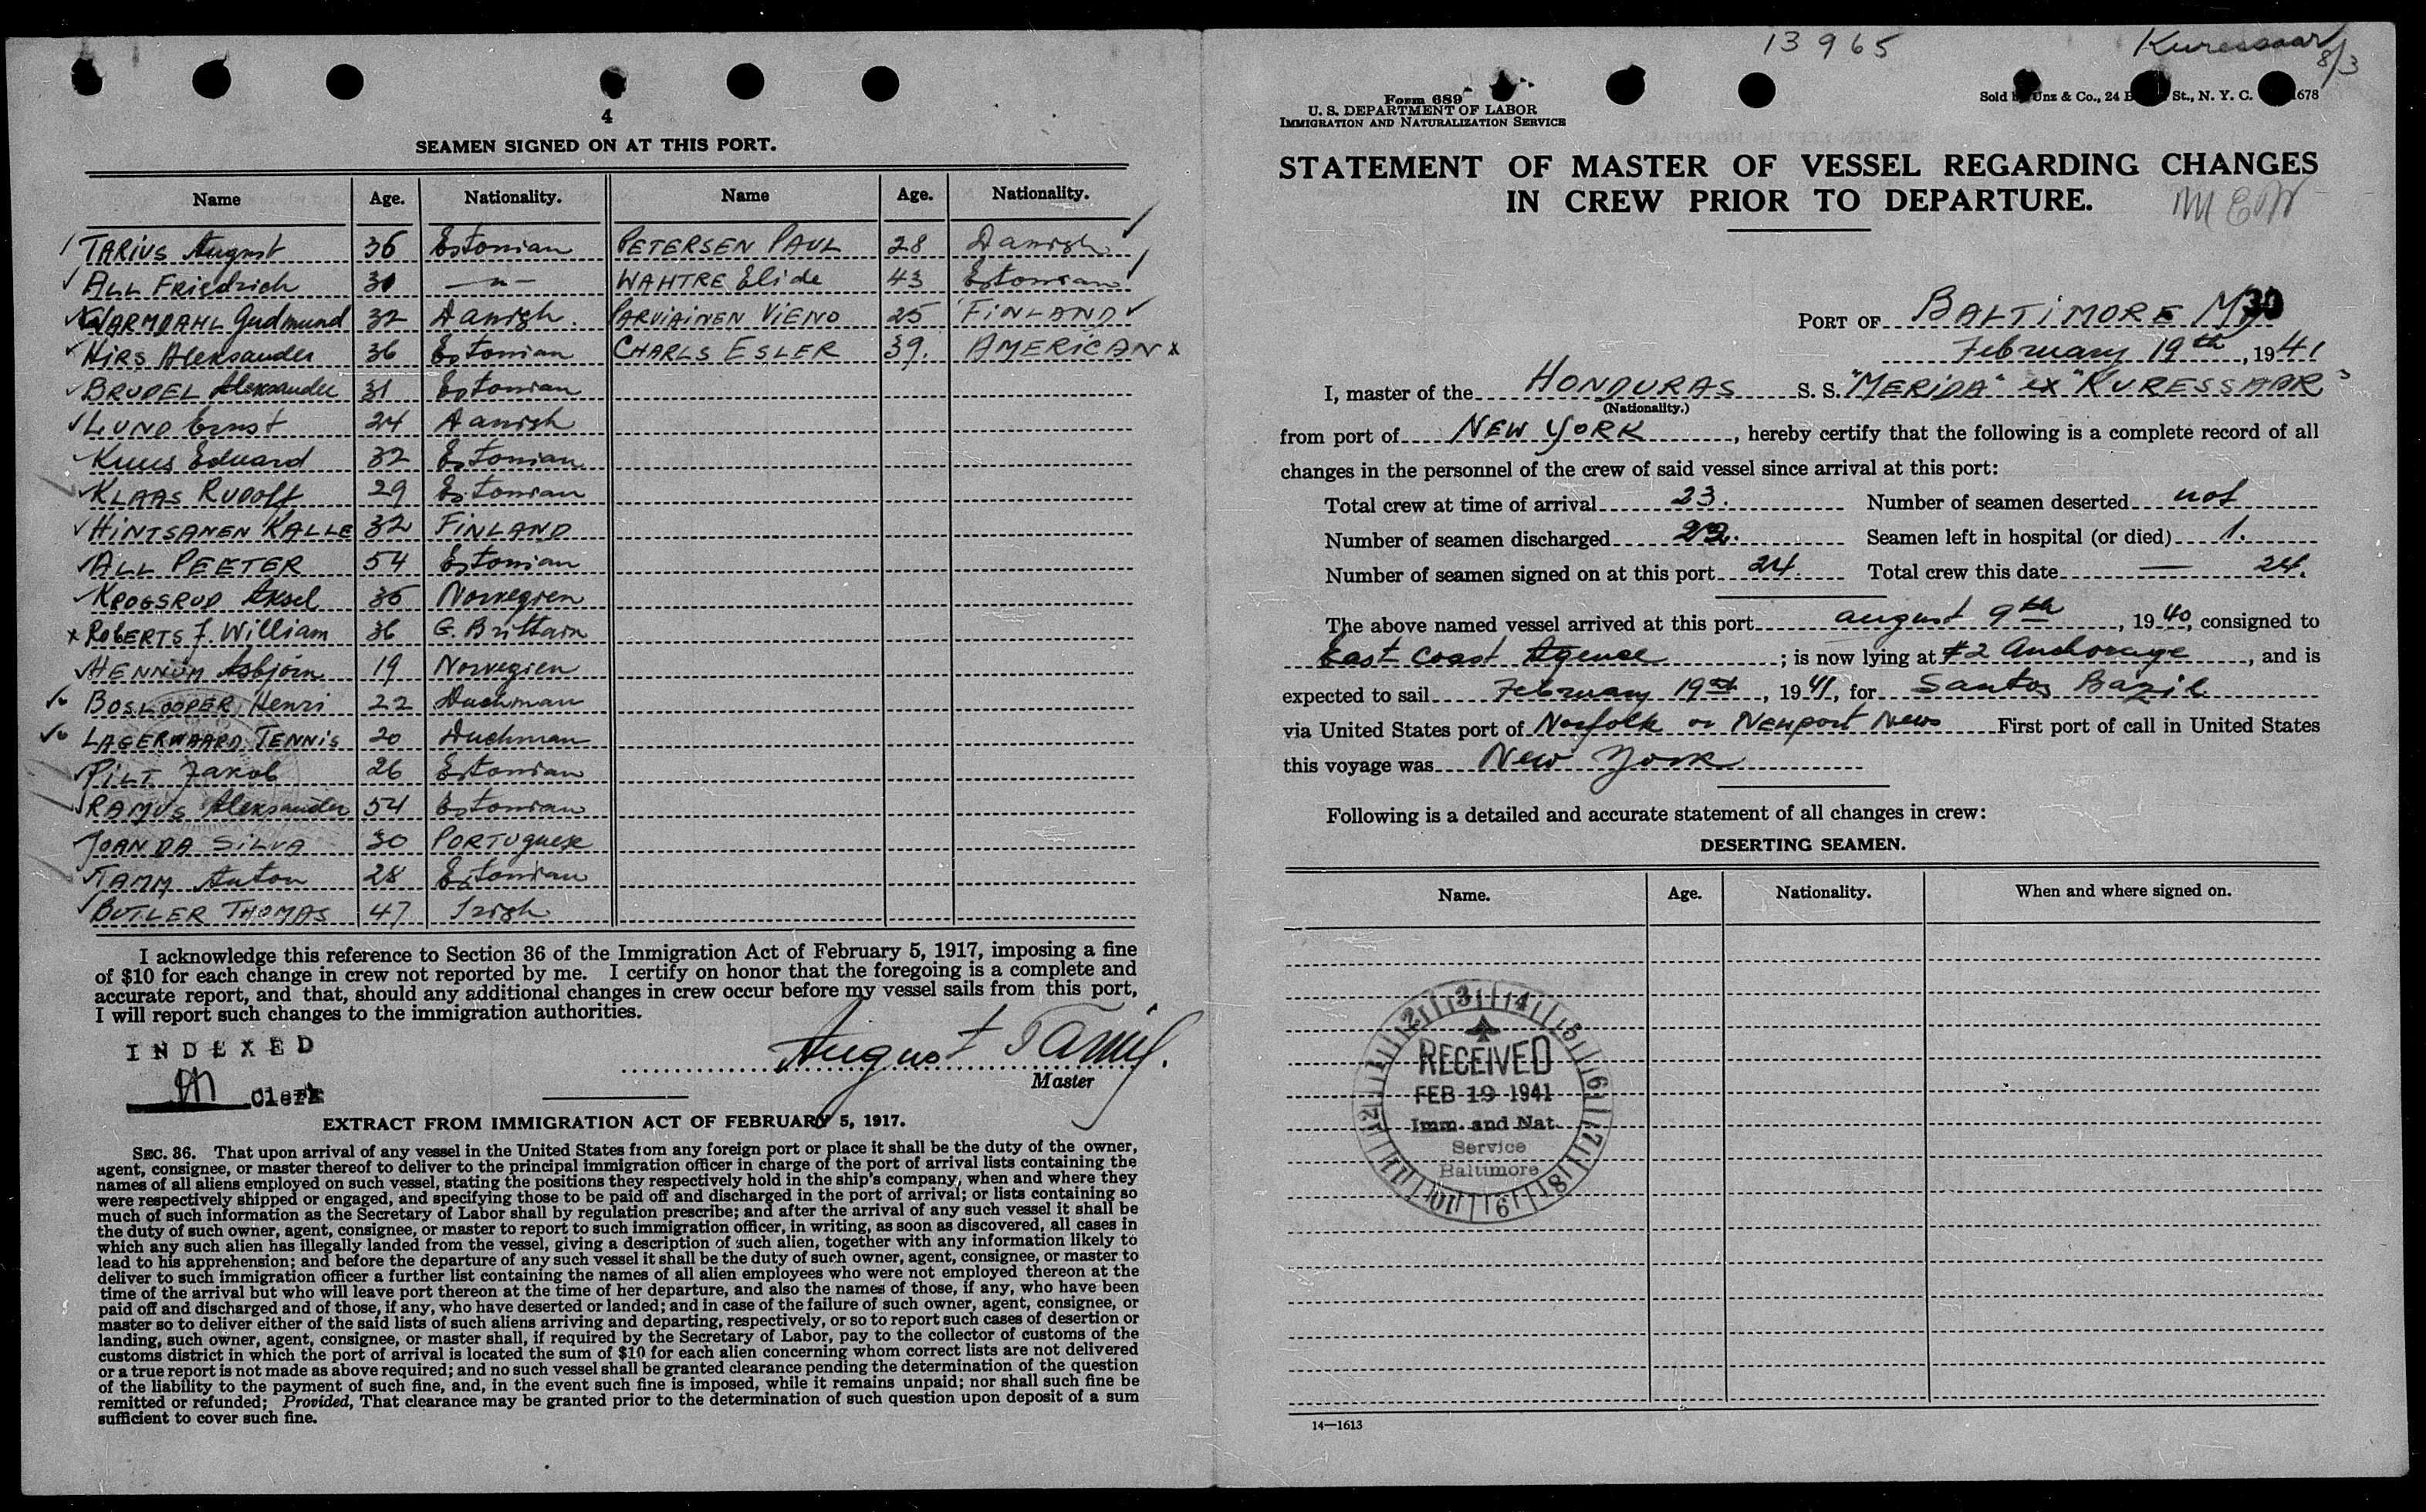 4
SEAMEN SIGNED ON AT THIS PORT.
Name Age. Nationality. Name Age. Nationality.
TARIUS August 36 Estonian PETERSEN PAUL 28 Danish
ALL Friedrich 30 —"— WAHTRE Elide 43 Estonian
WARMDAHL Gudmund 32 Danish. PARVIAINEN VIENO 25 FINLAND
HIRS Aleksander 36 Estonian CHARLS ESLER 39. AMERICAN x
BRUDEL Alexander 31 Estonian
LUND Ernst 24 Danish
Kuus Eduard 32 Estonian
KLAAS RUDOLF 29 Estonian
HINTSANEN KALLE 32 FINLAND
ALL PEETER 54 Estonian
KROGSRUD Aksel 36 Norvegien
x ROBERTS J. William 36 G. Brittain
HENNUM Asbjörn 19 Norvegien
BOSLOOPER Henri 22 Duchman
LAGERWAARD TENNIS 20 Duchman
PILT Jakob 26 Estonian
RAMUS Aleksander 54 Estonian
JOAN DA SILVA 30 PORTUguese
TAMM Anton 28 Estonian
BUTLER THOMAS 47 Irish
I acknowledge this reference to Section 36 of the Immigration Act of February 5, 1917, imposing a fine
of $10 for each change in crew not reported by me. I certify on honor that the foregoing is a complete and
accurate report, and that, should any additional changes in crew occur before my vessel sails from this port,
I will report such changes to the immigration authorities.
INDEXED
Clerk
August Tarius.
Master
EXTRACT FROM IMMIGRATION ACT OF FEBRUARY 5, 1917.
SEC. 36. That upon arrival of any vessel in the United States from any foreign port or place it shall be the duty of the owner,
agent, consignee, or master thereof to deliver to the principal immigration officer in charge of the port of arrival lists containing the
names of all aliens employed on such vessel, stating the positions they respectively hold in the ship's company, when and where they
were respectively shipped or engaged, and specifying those to be paid off and discharged in the port of arrival; or lists containing so
much of such information as the Secretary of Labor shall by regulation prescribe; and after the arrival of any such vessel it shall be
the duty of such owner, agent, consignee, or master to report to such immigration officer, in writing, as soon as discovered, all cases in
which any such alien has illegally landed from the vessel, giving a description of such alien, together with any information likely to
lead to his apprehension; and before the departure of any such vessel it shall be the duty of such owner, agent, consignee, or master to
deliver to such immigration officer a further list containing the names of all alien employees who were not employed thereon at the
time of the arrival but who will leave port thereon at the time of her departure, and also the names of those, if any, who have been
paid off and discharged and of those, if any, who have deserted or landed; and in case of the failure of such owner, agent, consignee, or
master so to deliver either of the said lists of such aliens arriving and departing, respectively, or so to report such cases of desertion or
landing, such owner, agent, consignee, or master shall, if required by the Secretary of Labor, pay to the collector of customs of the
customs district in which the port of arrival is located the sum of $10 for each alien concerning whom correct lists are not delivered
or a true report is not made as above required; and no such vessel shall be granted clearance pending the determination of the question
of the liability to the payment of such fine, and, in the event such fine is imposed, while it remains unpaid; nor shall such fine be
remitted or refunded; Provided, That clearance may be granted prior to the determination of such question upon deposit of a sum
sufficient to cover such fine.
13965 Kuressaar
8/3
Form 689
U. S. DEPARTMENT OF LABOR
IMMIGRATION AND NATURALIZATION SERVICE
Sold Unz & Co., 24 St., N. Y. C. 1678
STATEMENT OF MASTER OF VESSEL REGARDING CHANGES
IN CREW PRIOR TO DEPARTURE.
MEW
PORT OF BALTIMORE Md 30
February 19th, 1941
I, master of the HONDURAS S. S. "MERIDA" ex "KURESSAAR"
(Nationality.)
from port of NEW YORK, hereby certify that the following is a complete record of all
changes in the personnel of the crew of said vessel since arrival at this port:
Total crew at time of arrival 23. Number of seamen deserted not
Number of seamen discharged 22. Seamen left in hospital (or died) 1.
Number of seamen signed on at this port 24. Total crew this date — 24.
The above named vessel arrived at this port august 9th, 1940, consigned to
East Coast Agence; is now lying at #2 Anchorage, and is
expected to sail February 19th, 1941, for Santos Bazil
via United States port of Norfolk or Newport News First port of call in United States
this voyage was New York
Following is a detailed and accurate statement of all changes in crew:
DESERTING SEAMEN.
Name. Age. Nationality. When and where signed on.
1 2 3 4 5 6 7 8 9 10 11 12
RECEIVED
FEB 19 1941
Imm. and Nat.
Service
Baltimore
14—1613